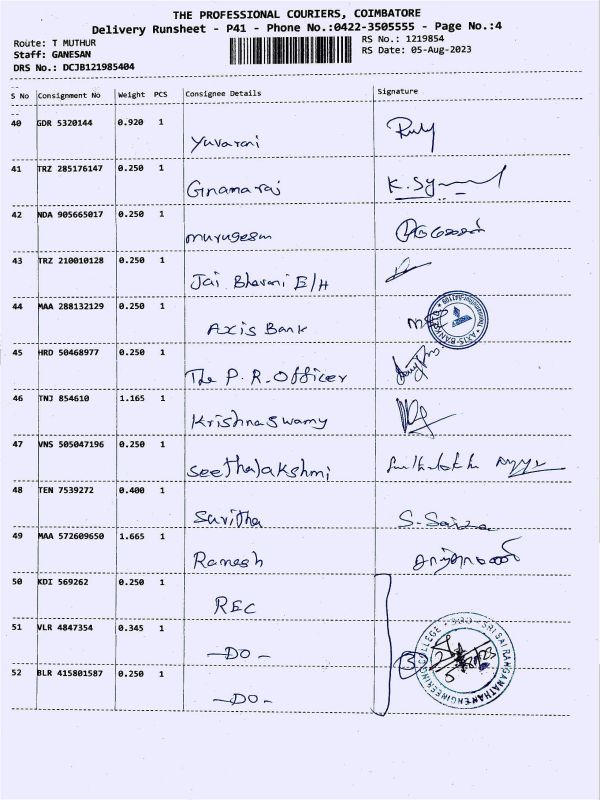 THE PROFESSIONAL COURIERS, COIMBATORE
Delivery Runsheet - P41 - Phone No.:0422-3505555 - Page No.:4
Route: T MUTHUR RS No.: 1219854
Staff: GANESAN RS Date: 05-Aug-2023
DRS No.: DCJB121985404
S No Consignment No Weight PCS Consignee Details Signature
40 GDR 5320144 0.920 1
Yuvaraj
41 TRZ 285176147 0.250 1
Gnanaraj K. Sy
42 NDA 905665017 0.250 1
murugesan
43 TRZ 210010128 0.250 1
Jai Bhavani E/H
44 MAA 288132129 0.250 1
Axis Bank AXIS BANK
45 HRD 50468977 0.250 1
The P.R. Officer
46 TNJ 854610 1.165 1
Krishnaswamy
47 VNS 505047196 0.250 1
Seethalakshmi
48 TEN 7539272 0.400 1
Saritha
49 MAA 572609650 1.665 1
Ramesh
50 KDI 569262 0.250 1
REC
51 VLR 4847354 0.345 1
-DO- 3 SRI SAI RANGANATHAN ENGINEERING COLLEGE
52 BLR 415801587 0.250 1
-DO-